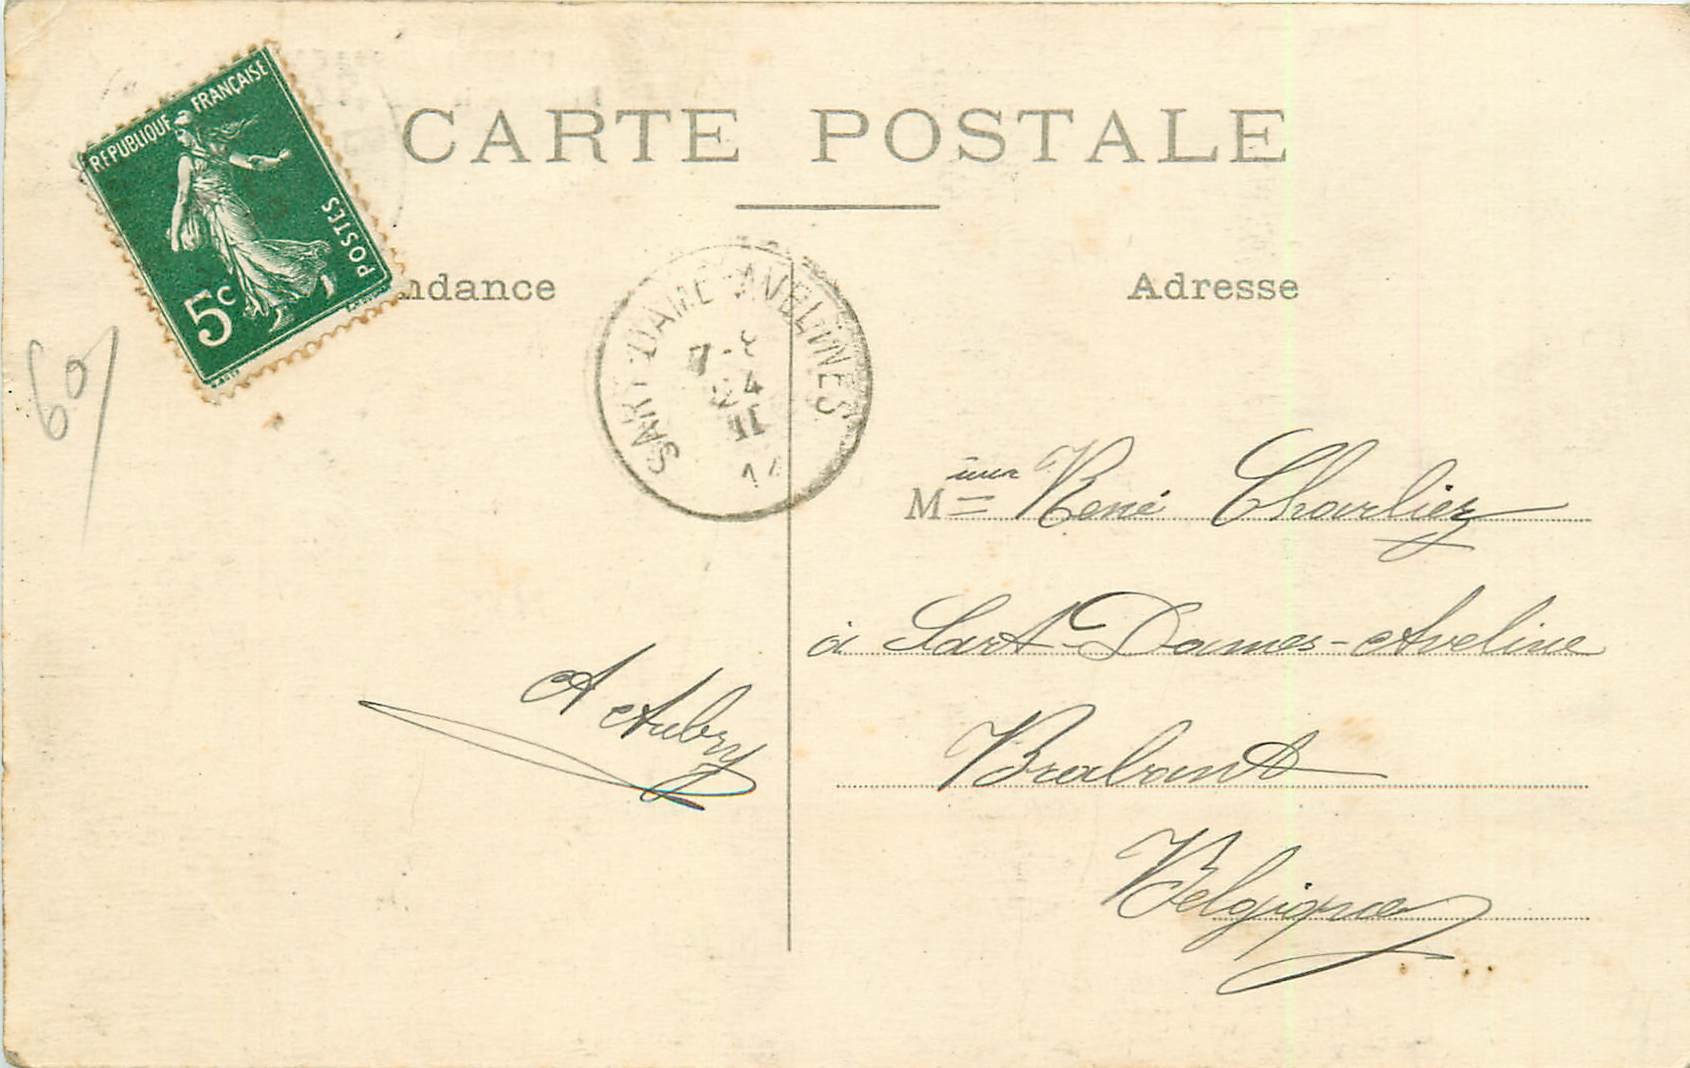 REPUBLIQUE FRANÇAISE
POSTES
5c
CARTE POSTALE
ndance
Adresse
SART-DAME-AVELINES
7-8
24
II
14
60
Mme René Charlier
à Sart-Dames-Aveline
Brabant
Belgique
A Aubry